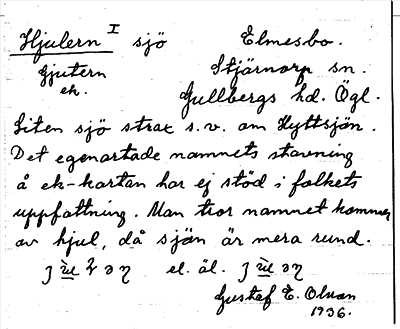 Hjulern I sjö Elmesbo.
Gjutern Stjärnorp sn.
ek. Gullbergs hd. Ögl.
Liten sjö strax s.v. om Hyttsjön.
Det egenartade namnets stavning
å ek-kartan har ej stöd i folkets
uppfattning. Man tror namnet kommer
av hjul, då sjön är mera rund.
el. äl.
Gustaf E. Olsson
1936.